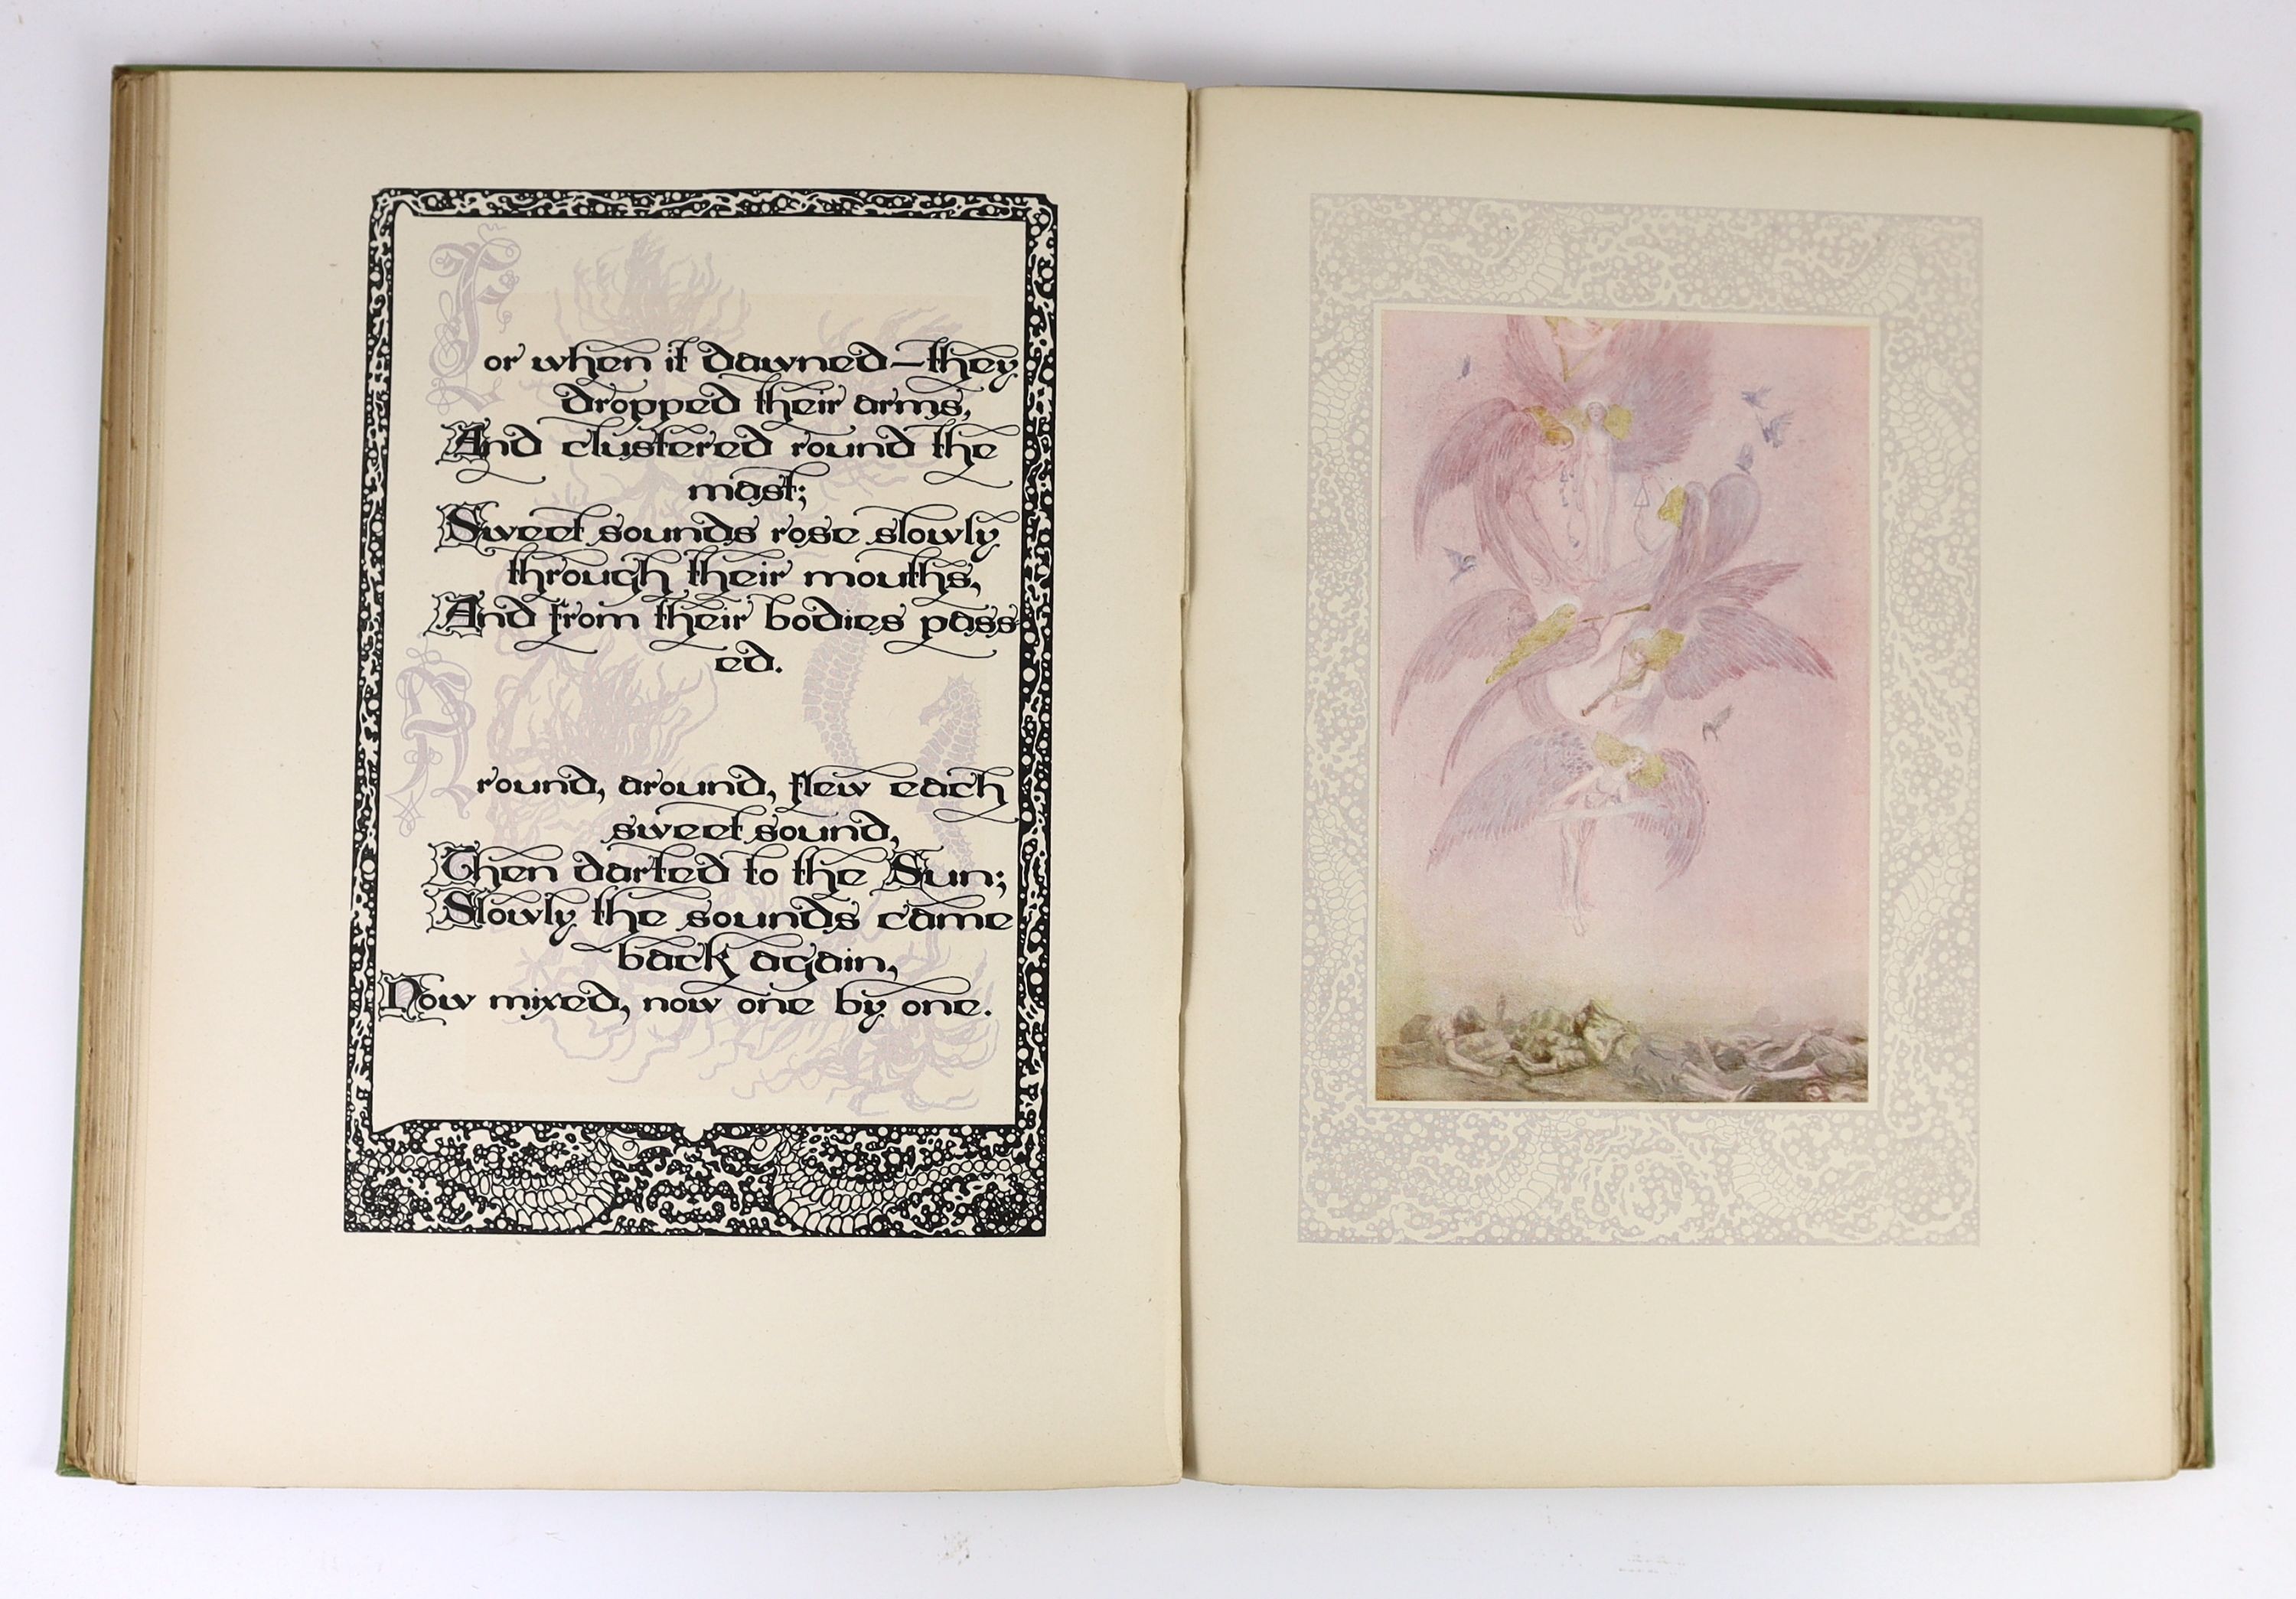 For when it dawned—they
dropped their arms,
And clustered round the
mast;
Sweet sounds rose slowly
through their mouths,
And from their bodies pass-
ed.
Around, around, flew each
sweet sound,
Then darted to the Sun;
Slowly the sounds came
back again,
Now mixed, now one by one.